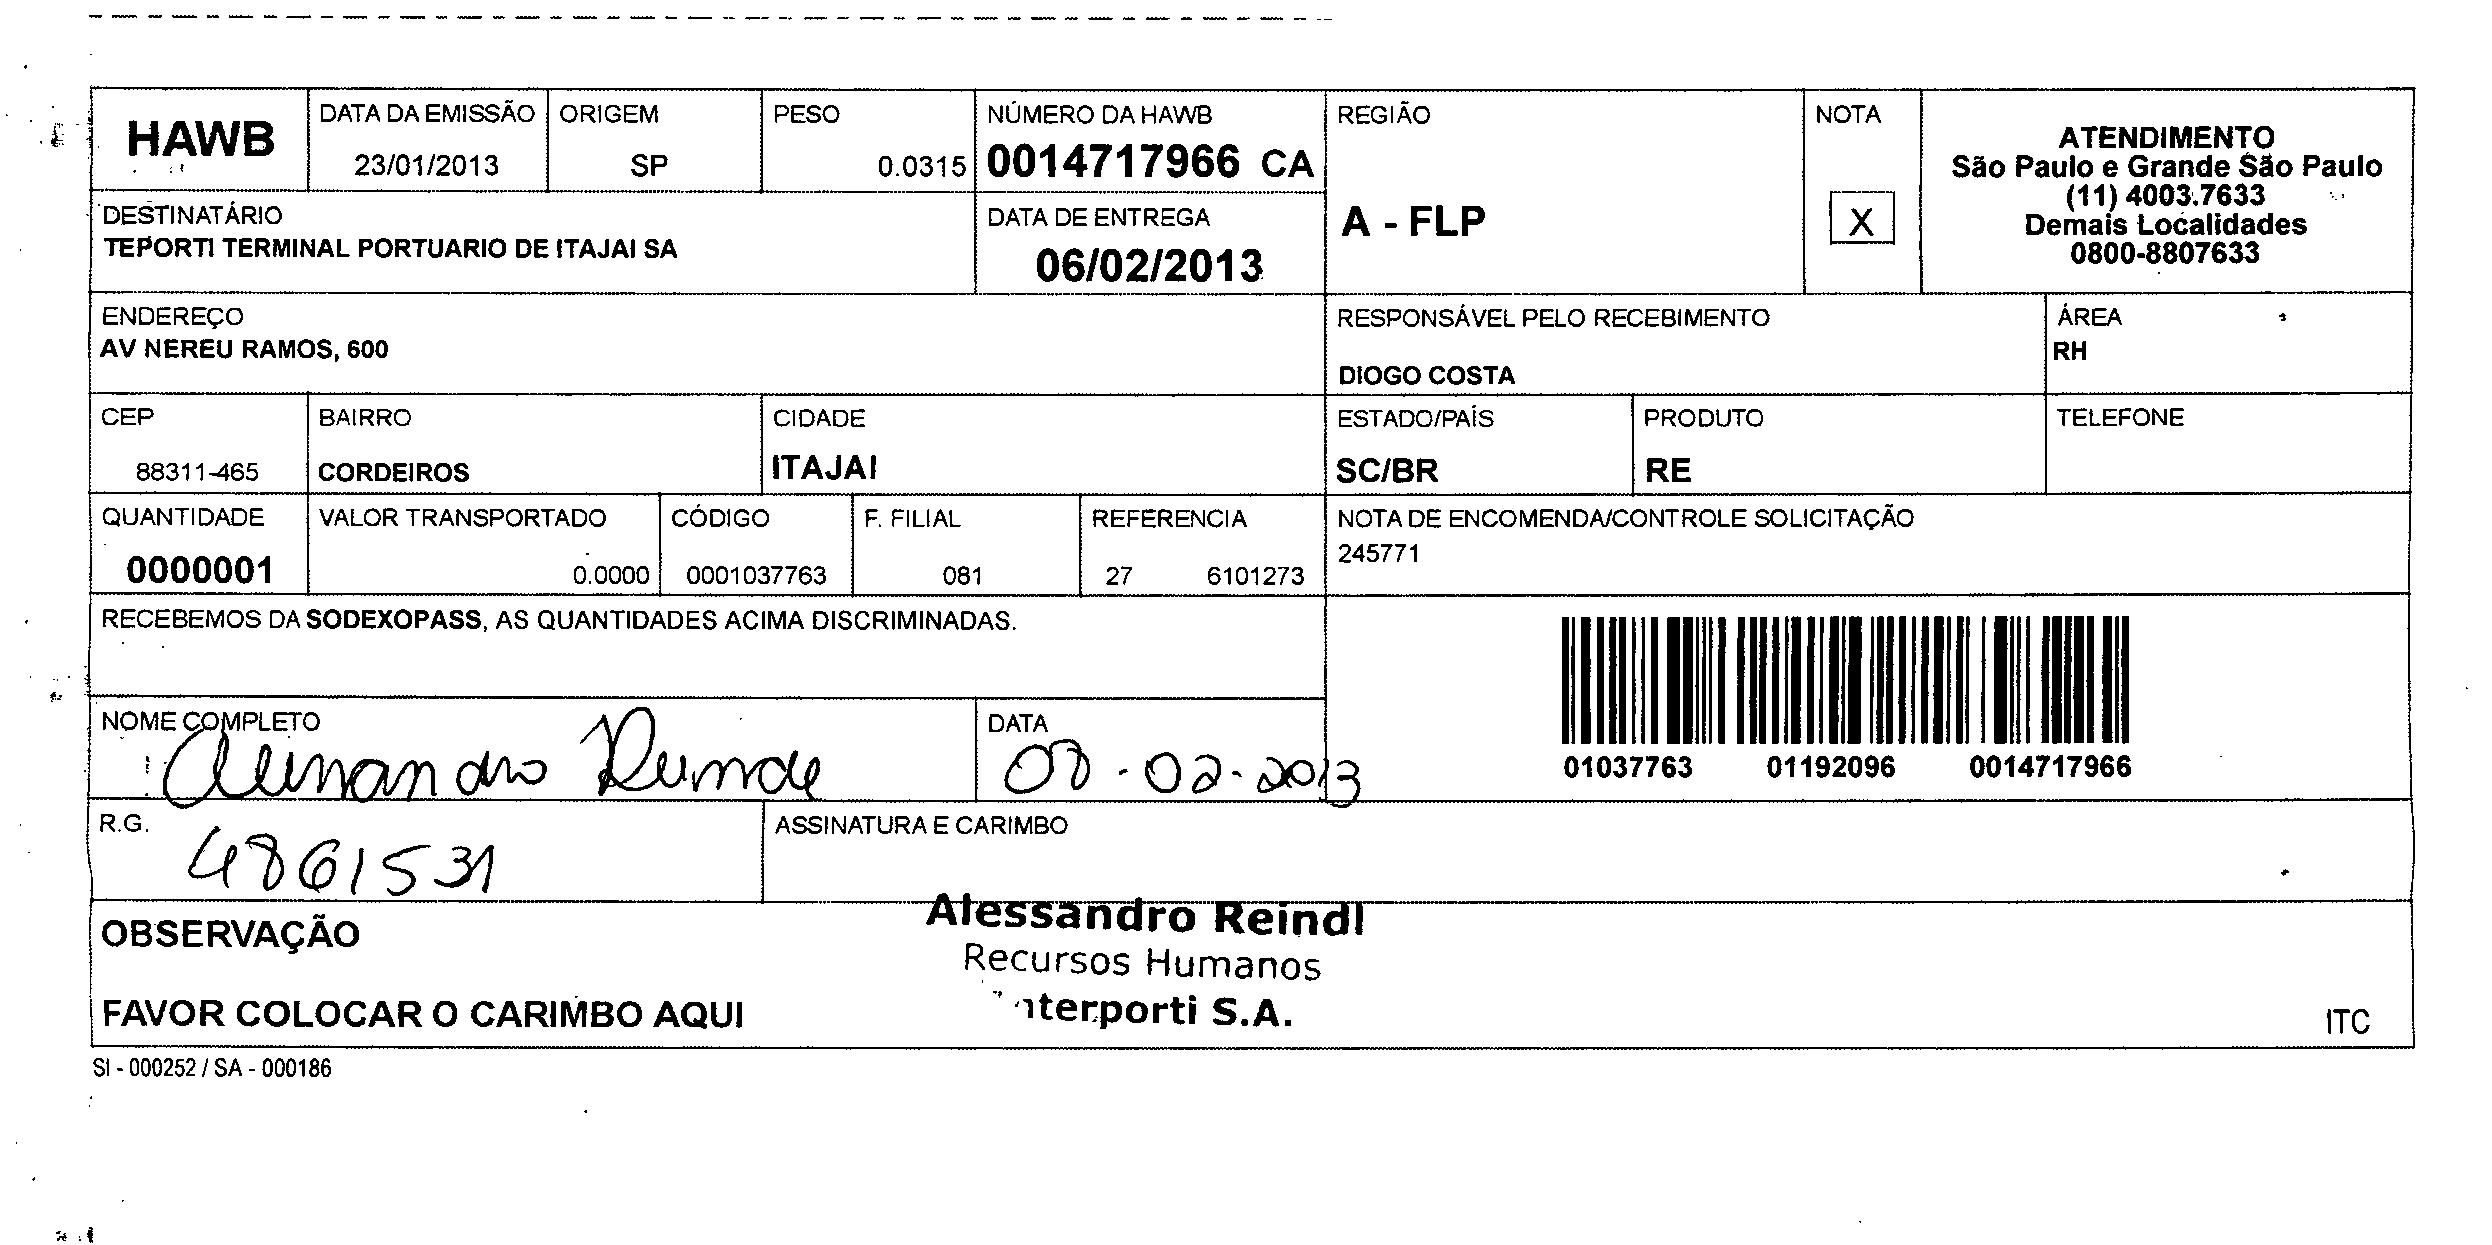 HAWB
DATA DA EMISSÃO
23/01/2013
ORIGEM
SP
PESO
0.0315
NÚMERO DA HAWB
0014717966 CA
REGIÃO
A - FLP
NOTA
X
ATENDIMENTO
São Paulo e Grande São Paulo
(11) 4003.7633
Demais Localidades
0800-8807633
DESTINATÁRIO
TEPORTI TERMINAL PORTUARIO DE ITAJAI SA
DATA DE ENTREGA
06/02/2013
ENDEREÇO
AV NEREU RAMOS, 600
RESPONSÁVEL PELO RECEBIMENTO
DIOGO COSTA
ÁREA
RH
CEP
88311-465
BAIRRO
CORDEIROS
CIDADE
ITAJAI
ESTADO/PAÍS
SC/BR
PRODUTO
RE
TELEFONE
QUANTIDADE
0000001
VALOR TRANSPORTADO
0.0000
CÓDIGO
0001037763
F. FILIAL
081
REFERENCIA
27 6101273
NOTA DE ENCOMENDA/CONTROLE SOLICITAÇÃO
245771
RECEBEMOS DA SODEXOPASS, AS QUANTIDADES ACIMA DISCRIMINADAS.
01037763 01192096 0014717966
NOME COMPLETO
DATA
R.G.
4861531
ASSINATURA E CARIMBO
Alessandro Reindl
Recursos Humanos
S.A.
OBSERVAÇÃO
FAVOR COLOCAR O CARIMBO AQUI
ITC
SI - 000252 / SA - 000186